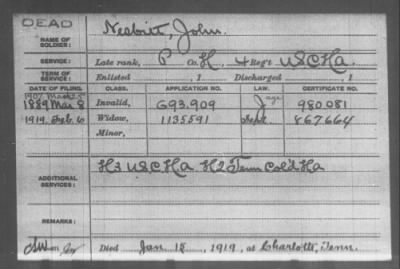 DEAD
NAME OF SOLDIER: Nesbitt, John.
SERVICE: Late rank, P Co. H, 4 Reg't U.S.C.H.a.
TERM OF SERVICE: Enlisted , 1 Discharged , 1
DATE OF FILING. CLASS. APPLICATION NO. LAW. CERTIFICATE NO.
1907
1889 Mar 8 Invalid, 693.909 980.081
1919. Feb. 6 Widow, 1135591 Sept. 867664
Minor,
ADDITIONAL SERVICES: H3 U.S.C.H.a. H2 Tenn Col'd H.a
REMARKS:
Died Jan. 18, 1919, at Charlotte, Tenn.